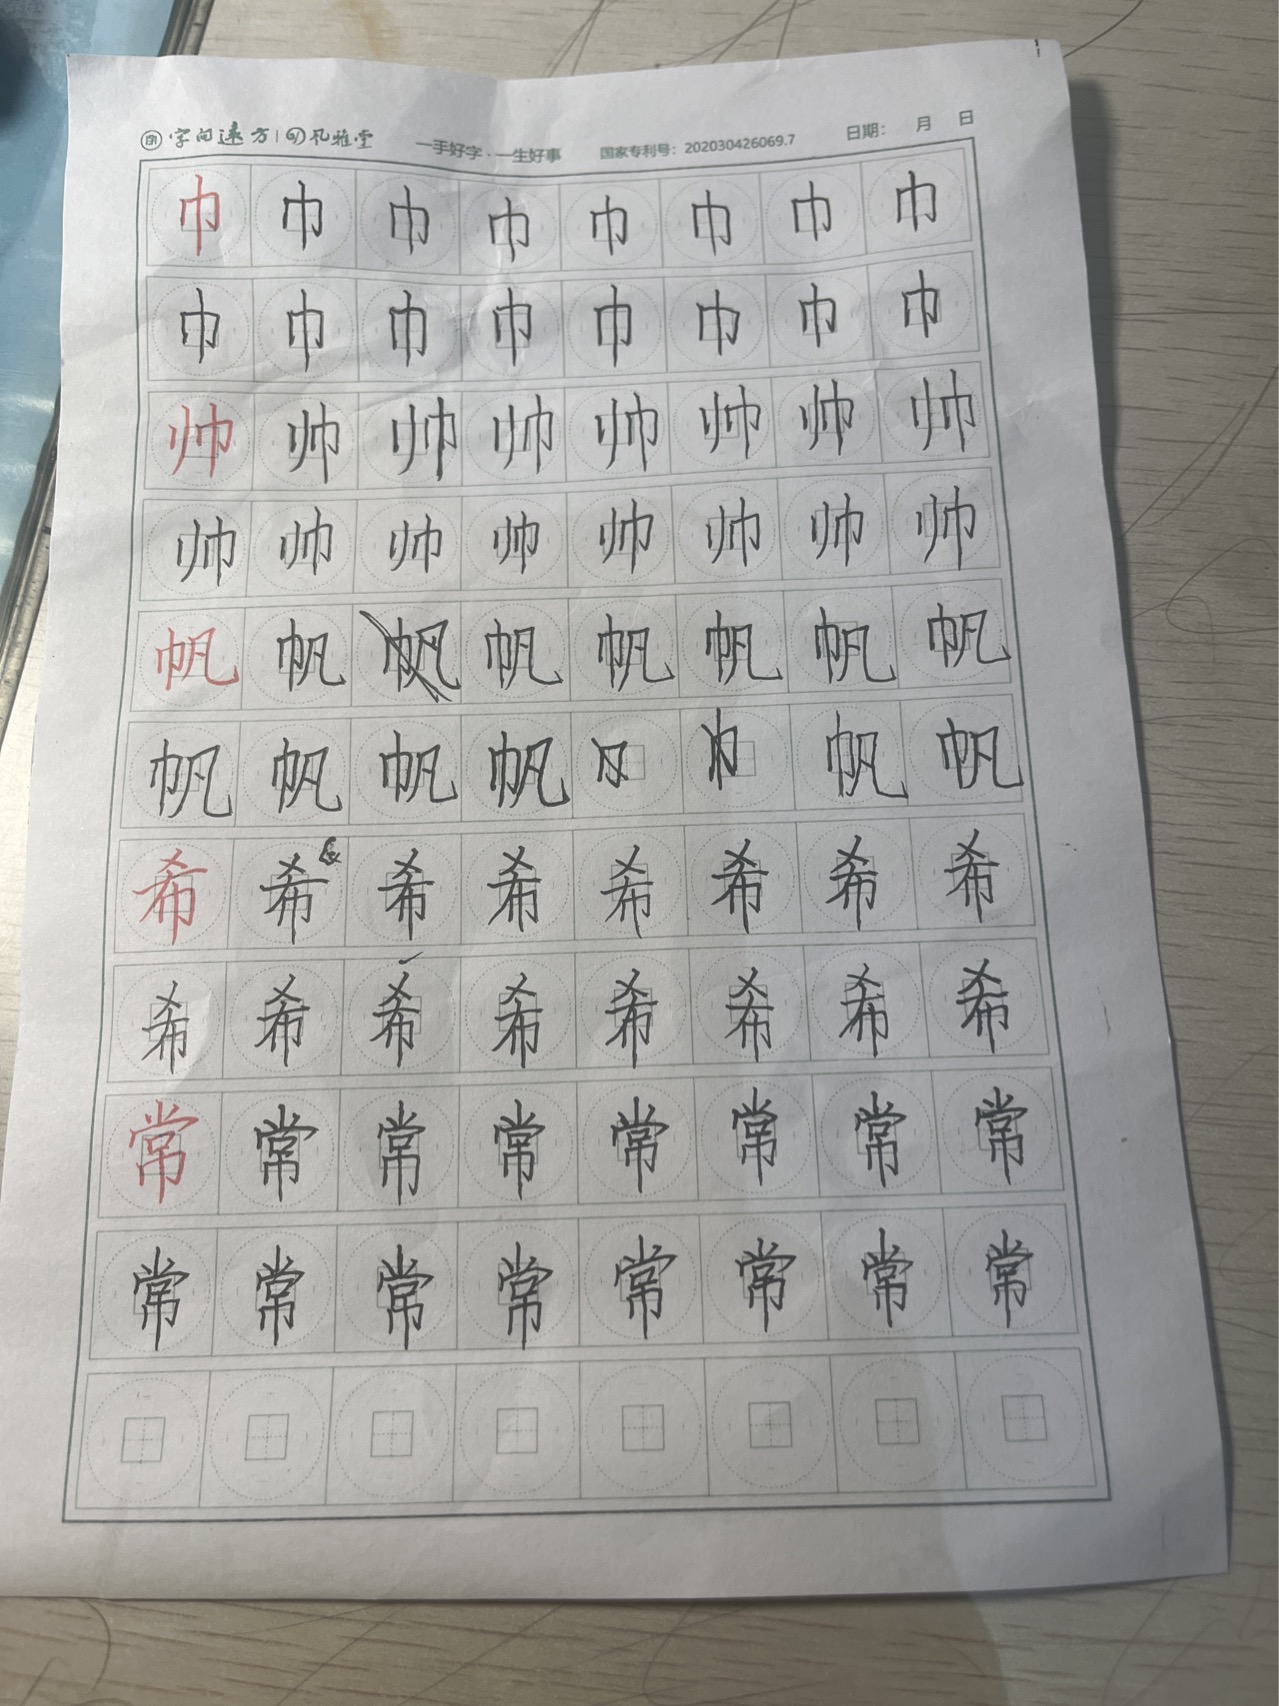 字问远方 | 风雅堂 一手好字·一生好事 国家专利号：202030426069.7 日期： 月 日
巾 巾 巾 巾 巾 巾 巾 巾
巾 巾 巾 巾 巾 巾 巾 巾
帅 帅 帅 帅 帅 帅 帅 帅
帅 帅 帅 帅 帅 帅 帅 帅
帆 帆 帆 帆 帆 帆 帆 帆
帆 帆 帆 帆 帆 帆
希 希 希 希 希 希 希 希
希 希 希 希 希 希 希 希
常 常 常 常 常 常 常 常
常 常 常 常 常 常 常 常